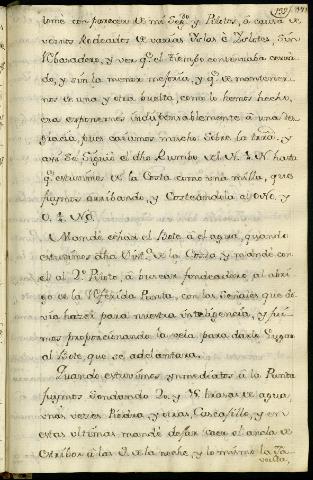 tome con parecer de mi Segdo y Pilotos, à causa de
vernos Rodeados de varias Yslas è Yslotes, Sin
Abrasadero, y ver qe el tiempo continuaba cerra-
do, y sin la menor mejoría, y qe de mantener-
nos de una y otra buelta, como lo hemos hecho,
era exponernos indispensablemente à una des-
gracia, pues caiamos mucho sobre la tierra, y
asi se siguió el dho Rumbo del N. ¼ N hasta
qe estuvimos de la Costa como una milla, que
fuymos arribando, y Costeandola al ONO, y
O. ¼ NO.
Mandé echar el Bote à el agua, quando
estuvimos dha Distª de la Costa, y mandé con
el al 2º Piloto, à buscar fondeadero al abri-
go de la Referida Punta, con las Señales que de-
via hazer para nuestra inteligencia, y fui-
mos proporcionando la vela para darle lugar
al Bote, que se adelantara.
Quando estuvimos ynmediatos à la Punta
fuymos sondando 20, y 15 brazas de agua,
unas vezes Piedra, y otras, Cascajillo, y en
estas ultimas mandé dejar caer el ancla de
Estribor à las 9 de la noche, y lo mismo la Ga-